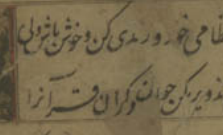 می خور و رندی کن و خوش باش ولی
تزویر مکن چون دگران قرآن را